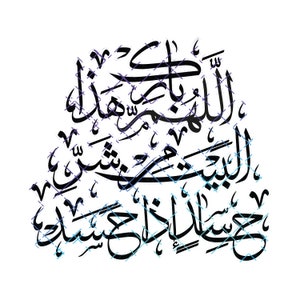 اللهم بارك هذا
البيت من شر
حاسد إذا حسد